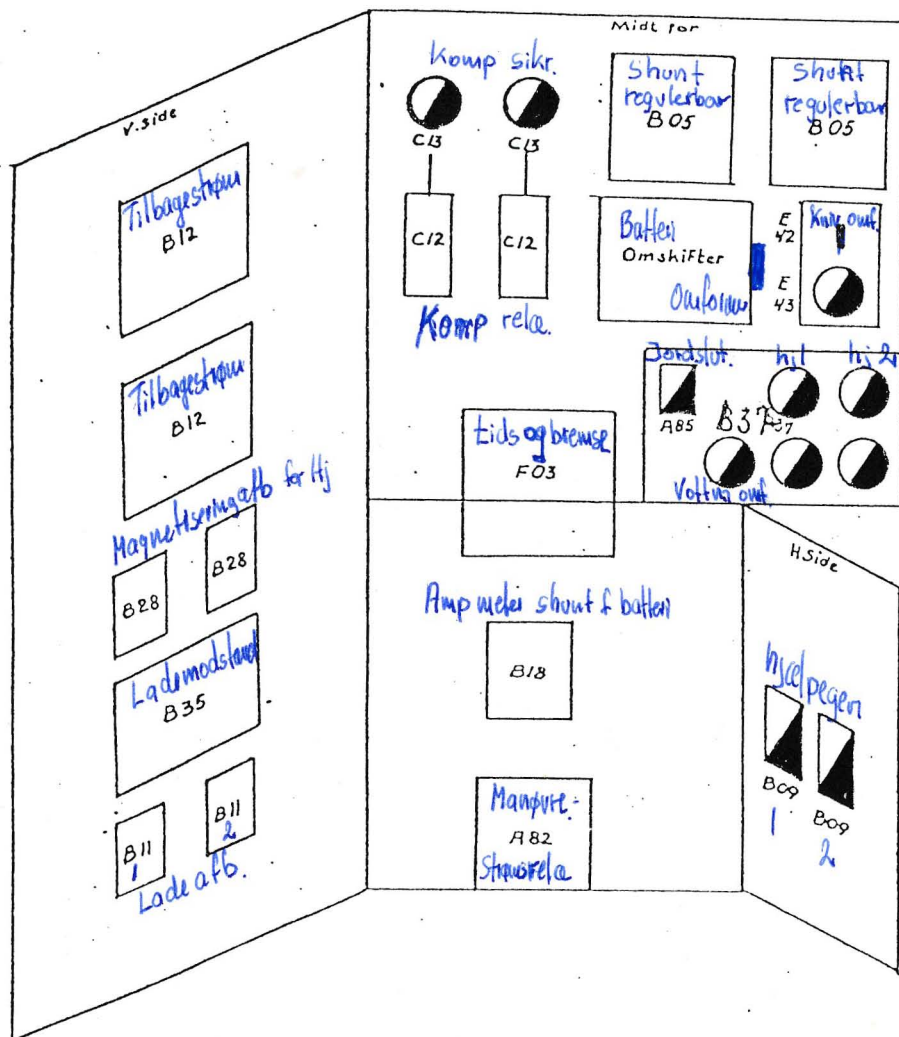 V.side
Tilbagestrøm
B12
Tilbagestrøm
B12
Magnetisering afb for Hj
B28
B28
Lademodstand
B35
B11
1
B11
2
Lade afb.
Midt for
Komp sikr.
C13
C13
C12
C12
Komp relæ.
Shunt
regulerbar
B05
Shunt
regulerbar
B05
Batteri
Omshifter
Omformer
E
42
E
43
omf.
Jordslut.
hj1
hj 2
A85
B37
37
omf.
tids og bremse
F03
Amp meter shunt f batteri
B18
Manøvre-
A82
Strømsrelæ
H.Side
hjælpegen
B09
1
B09
2